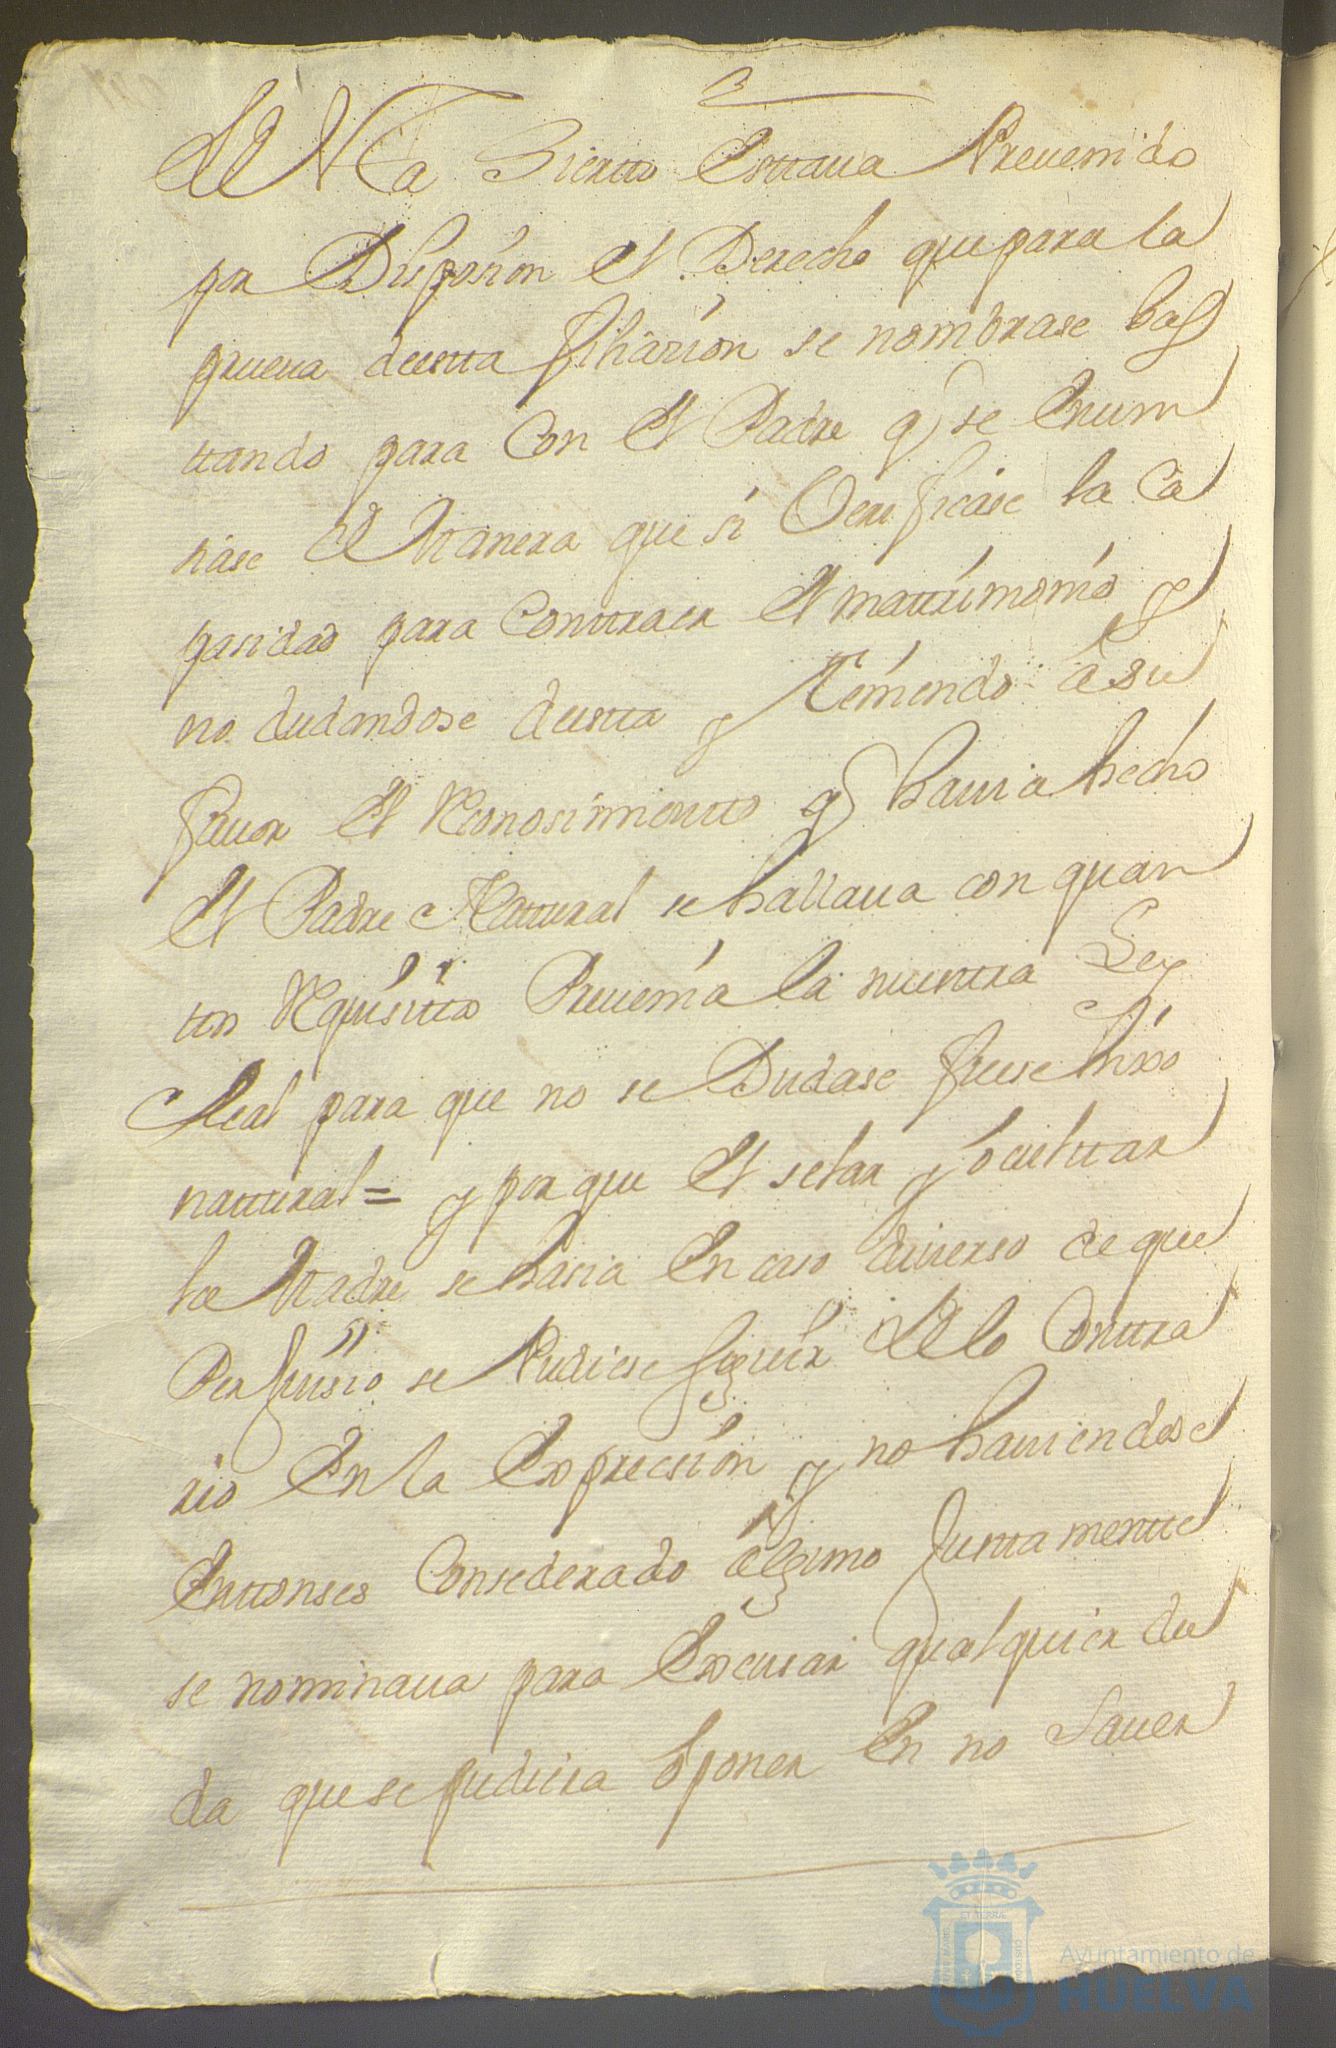 Siertto Esttaua Preuenido
por Disposision El Derecho que para la
prueua deestta filiasion se nombrase bas
ttando para Con El Padre q se Enun
siase De Manera que si Uerificase la Ca
pasidad para Conttraer El mattrimonio y
no dudandose deestta y teniendo â su
fauor El Reconosimientto q hauia hecho
El Padre Nattural se hallaua con quan
ttos Requisittos Preuenia la nuestra Ley
Real para que no se Dudase fuese hixo
nattural = y por que El selar y ocultar
la Madre se hasia En caso diuerso de que
Perjuisio se Pudiese seguir De lo Conttra
rio En la Expresion y no hauiendose
Enttonses Considerado alguno Justtamentte
se nominaua para Excusar qualquier du
da que se pudiera oponer En no Sauer
Ayuntamiento de
HUELVA